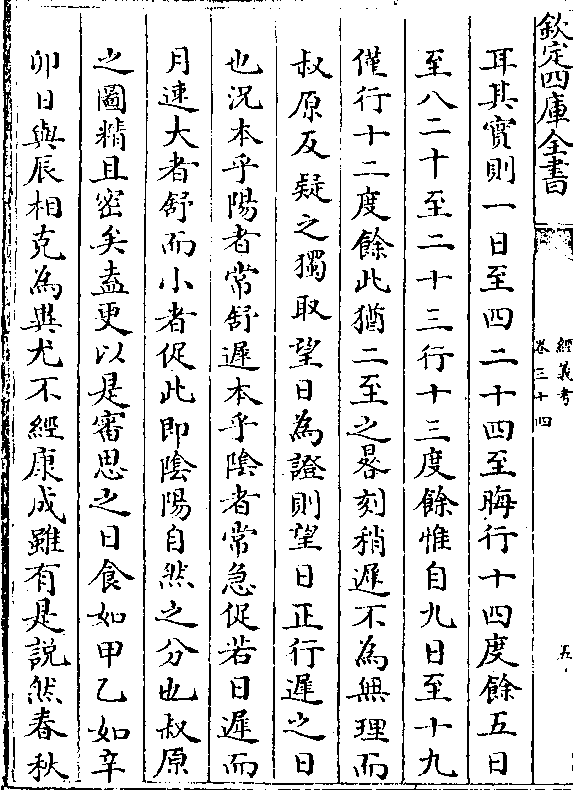 欽定四庫全書
經義考
卷三十四
五
耳其實則一日至四二十四至晦行十四度餘五日
至八二十至二十三行十三度餘惟自九日至十九
僅行十二度餘此猶二至之晷刻稍遲不為無理而
叔原反疑之獨取望日為證則望日正行遲之日
也況本乎陽者常舒遲本乎陰者常急促若日遲而
月速大者舒而小者促此即陰陽自然之分也叔原
之圖精且密矣盍更以是審思之日食如甲乙如辛
卯日與辰相克為異尤不經康成雖有是説然春秋